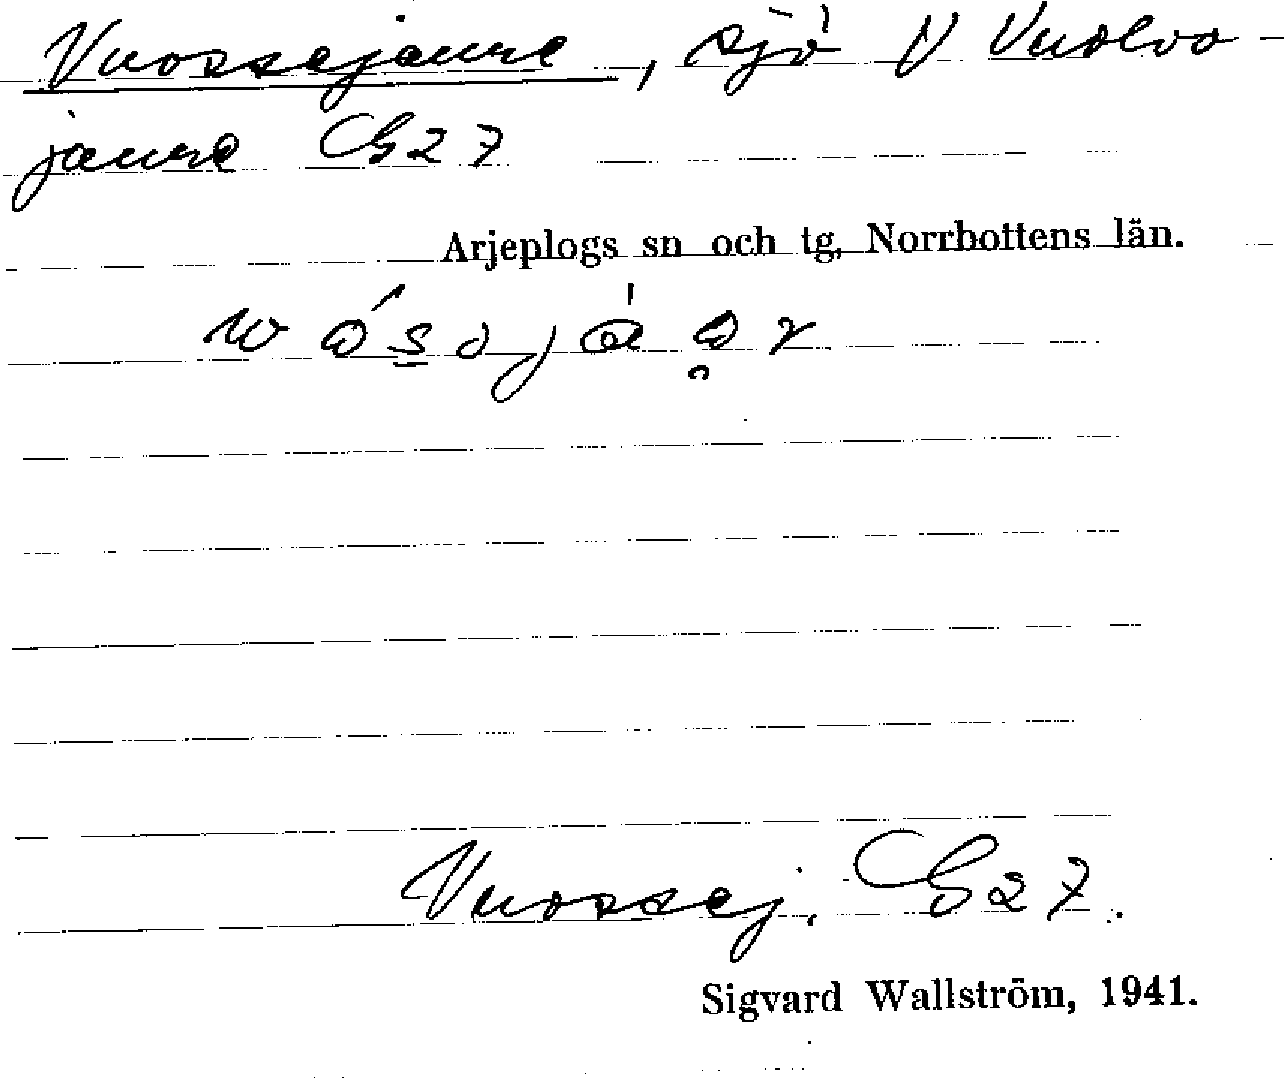 Vuossejaure, sjö N Vuolvo-
jaure G27
Arjeplogs sn och tg, Norrbottens län.
Vuossej. G27.
Sigvard Wallström, 1941.